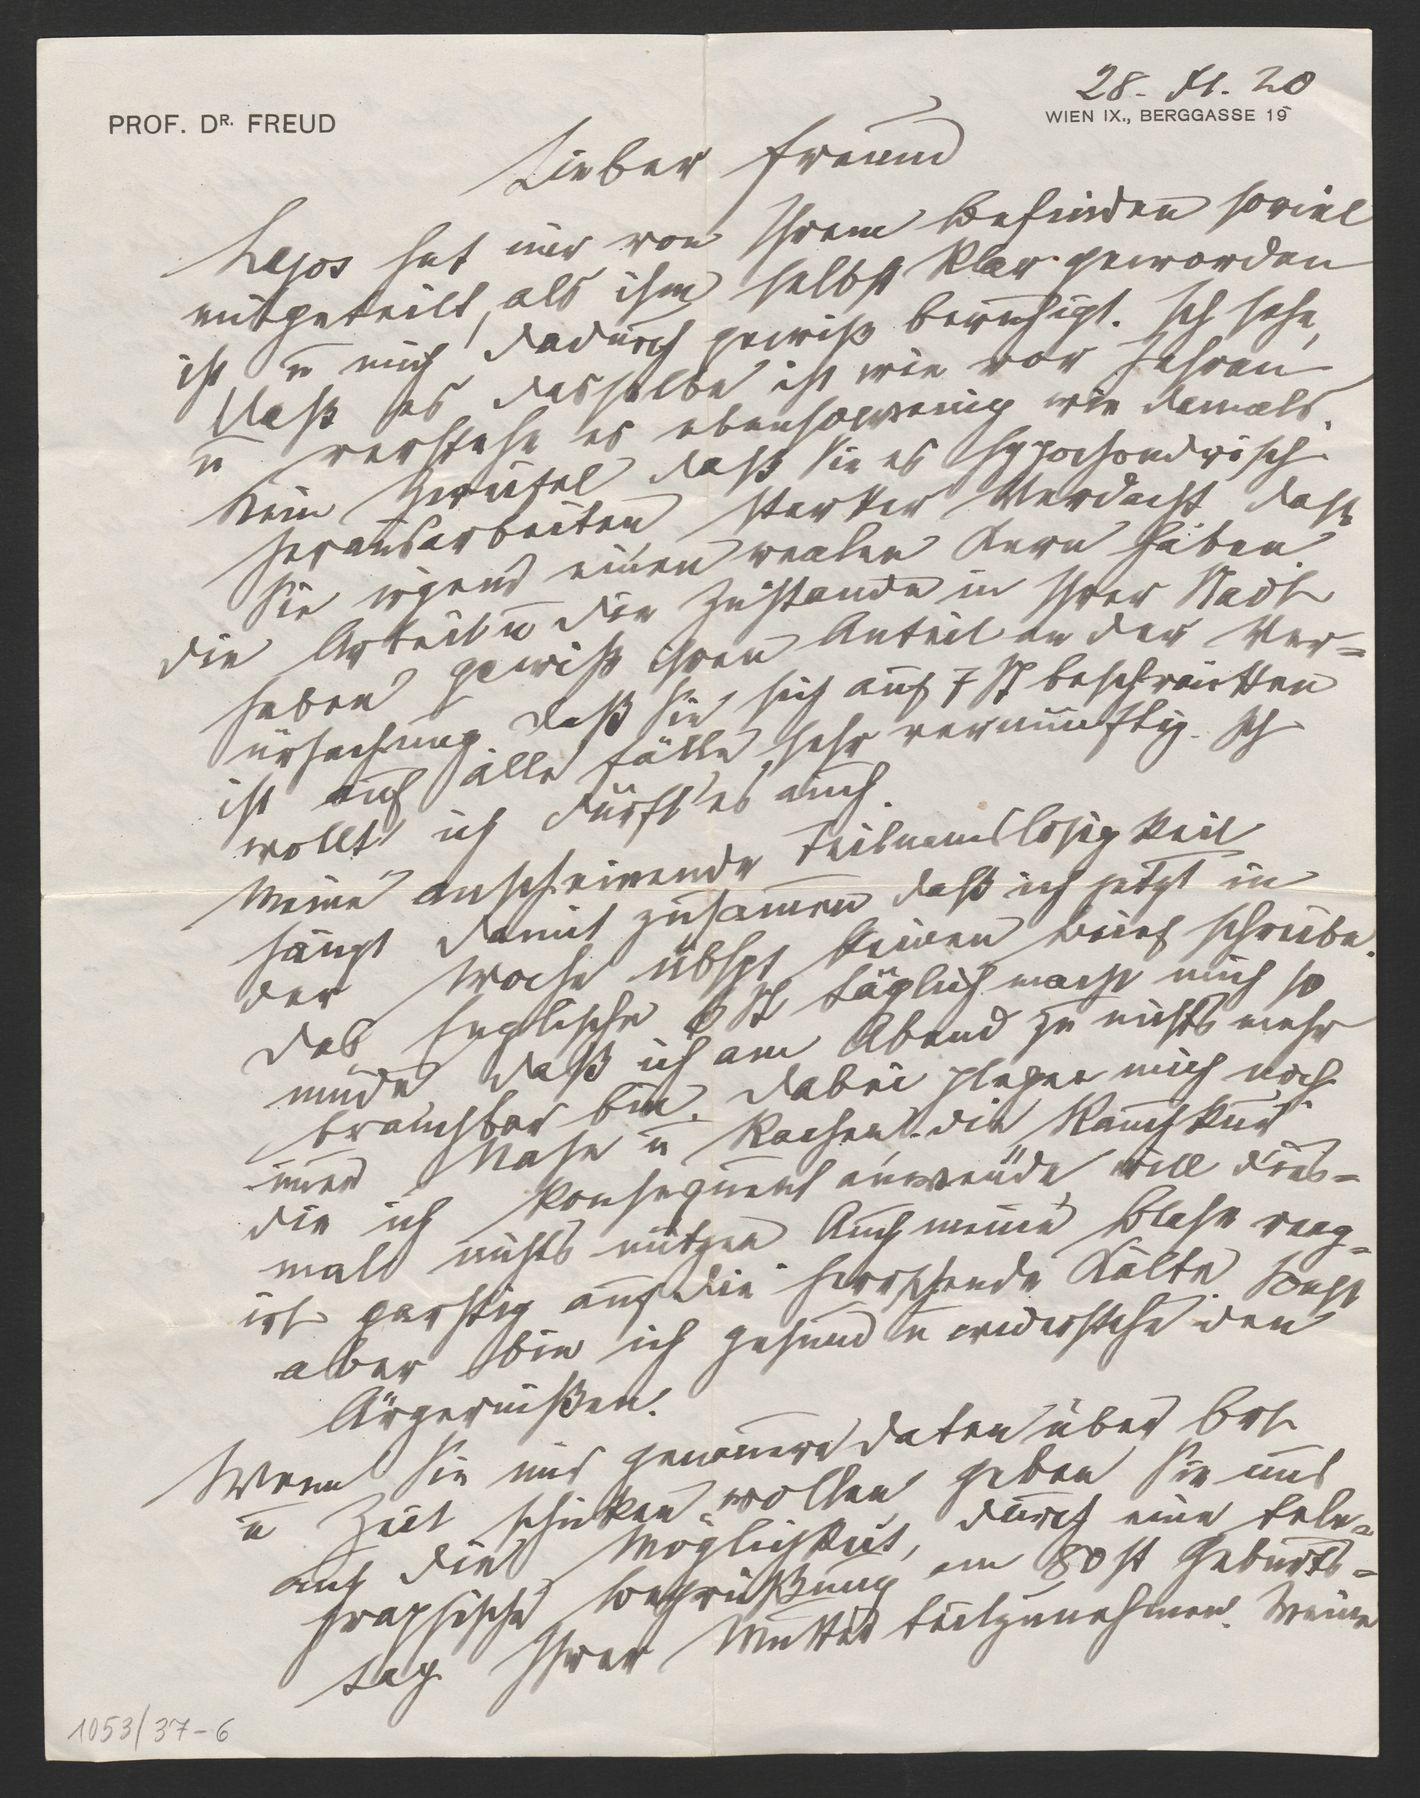 28. XI. 20
PROF. DR. FREUD
WIEN IX., BERGGASSE 19
Lieber Freund
Lajos hat mir von Ihrem Befinden soviel
mitgeteilt, als ihm selbst klar geworden
ist u mich dadurch gewiß beruhigt. Ich sehe,
daß es dasselbe ist wie vor Jahren
u verstehe es ebensowenig wie damals.
Kein Zweifel daß Sie es hypochondrisch
herausarbeiten, starker Verdacht daß
Sie irgend einen realen Kern haben.
die Arbeit u die Zustände in Ihrer Stadt
haben gewiß ihren Anteil an der Ver=
ursachung. daß Sie sich auf 7 St beschränken
ist auf alle Fälle sehr vernünftig. Ich
wollt' ich dürft' es auch.
Meine anscheinende Teilnamslosigkeit
hängt damit zusammen daß ich jetzt in
der Woche übhpt keinen Brief schreibe.
das Englische 6 St täglich macht mich so
müde daß ich am Abend zu nichts mehr
brauchbar bin. dabei plagen mich noch
immer Nase u Rachen. die Rauchkur
die ich konsequent anwende, will dies=
mal nichts nützen Auch meine Blase reag=
irt garstig auf die herrschende Kälte. Sonst
aber bin ich gesund u widerstehe den
Ärgernißen.
Wenn Sie mir genauere daten über Ort
u Zeit schicken wollen, geben Sie uns
auch die Möglichkeit, durch eine tele=
graphische Begrüßung am 80st Geburts=
tag Ihrer Mutter teilzunehmen. Meine
1053/37-6